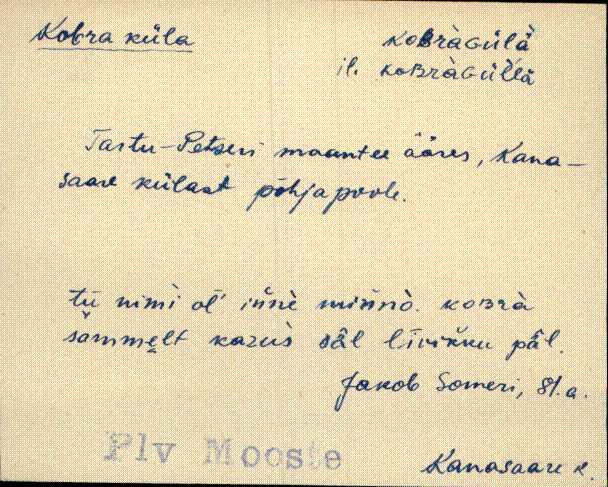 Kobra küla
KOBRÀGÜLÄ
il. KOBRÀGÜLLÄ
Tartu-Petseri maantee ääres, Kana-
saare külast põhja poole.
tū nimi ol' inne minnò. KOBRÀ
sammelt kazus säl livikku päl.
Jakob Someri, 81.a.
Plv Mooste
Kanasaare k.